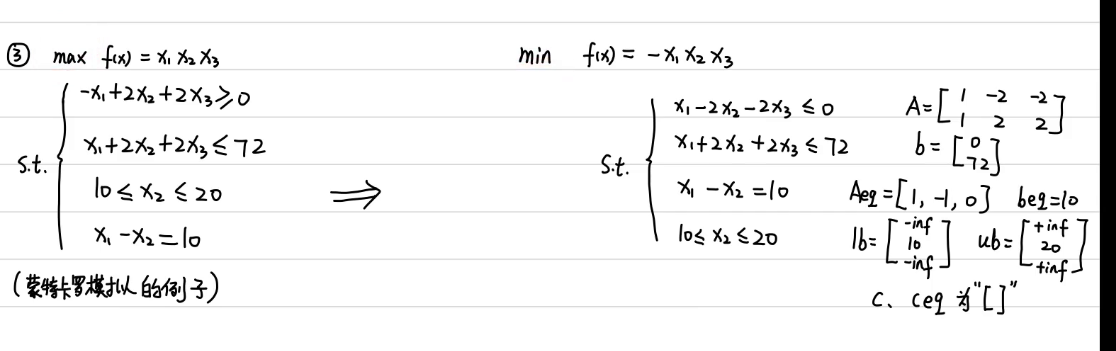 ③ max f(x) = x₁x₂x₃
s.t.
-x₁+2x₂+2x₃≥0
x₁+2x₂+2x₃≤72
10≤x₂≤20
x₁-x₂=10
(蒙特卡罗模拟的例子)
⟹
min f(x) = -x₁x₂x₃
s.t.
x₁-2x₂-2x₃≤0
x₁+2x₂+2x₃≤72
x₁-x₂=10
10≤x₂≤20
A=[1 -2 -2
1 2 2]
b=[0
72]
Aeq=[1,-1,0] beq=10
lb=[-inf
10
-inf]
ub=[+inf
20
+inf]
c、ceq 为"[]"